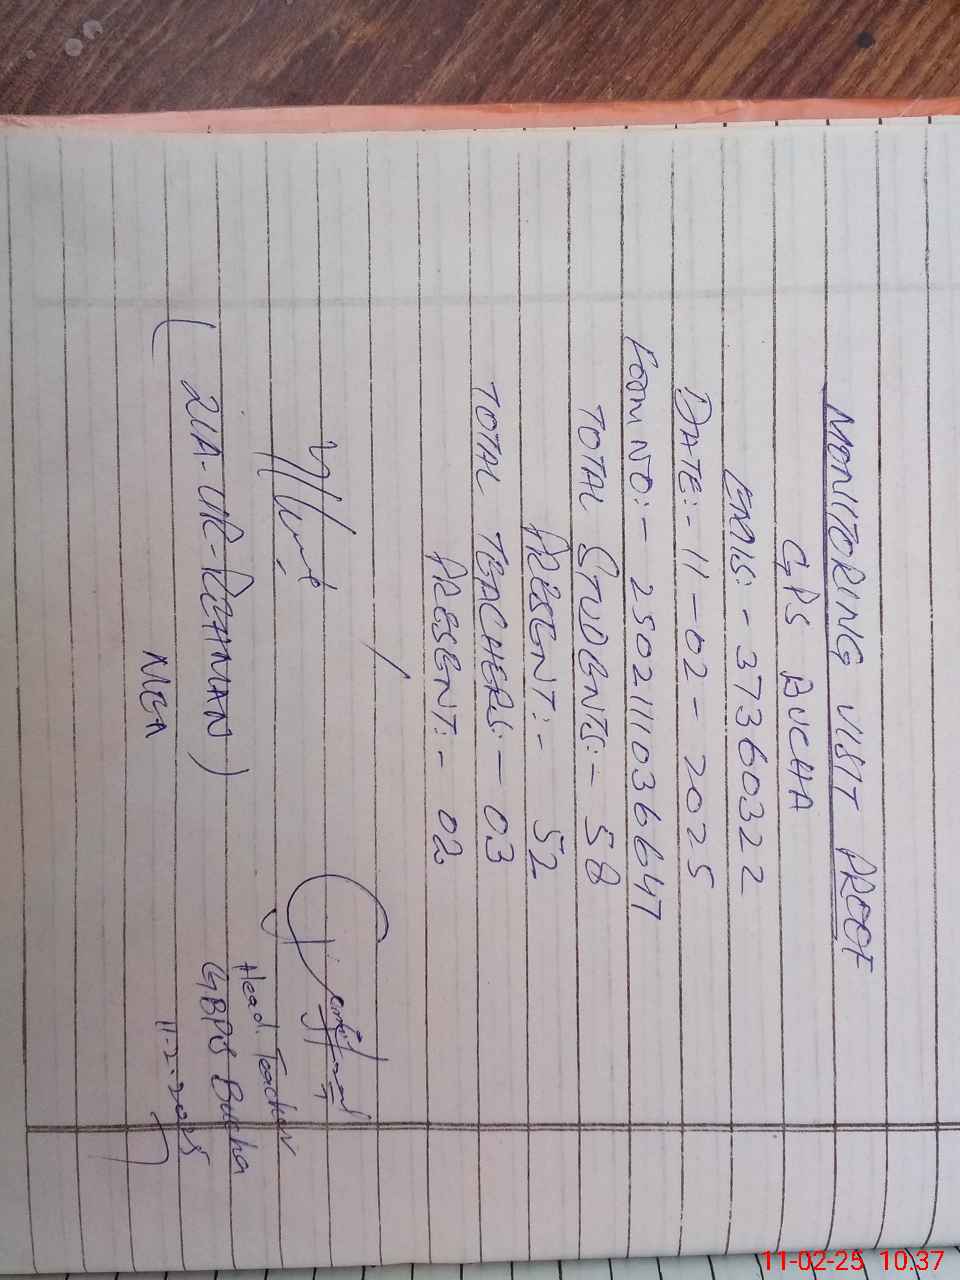 MONITORING VISIT PROOF
GPS BUCHA
EMIS:- 37360322
DATE:- 11-02-2025
FORM NO:- 2502111036647
TOTAL STUDENTS:- 58
PRESENT:- 52
TOTAL TEACHERS:- 03
PRESENT:- 02
(ZIA-UR-REHMAN)
MEA
Head Teacher
GBPS Bucha
11-2-2025
11-02-25 10.37